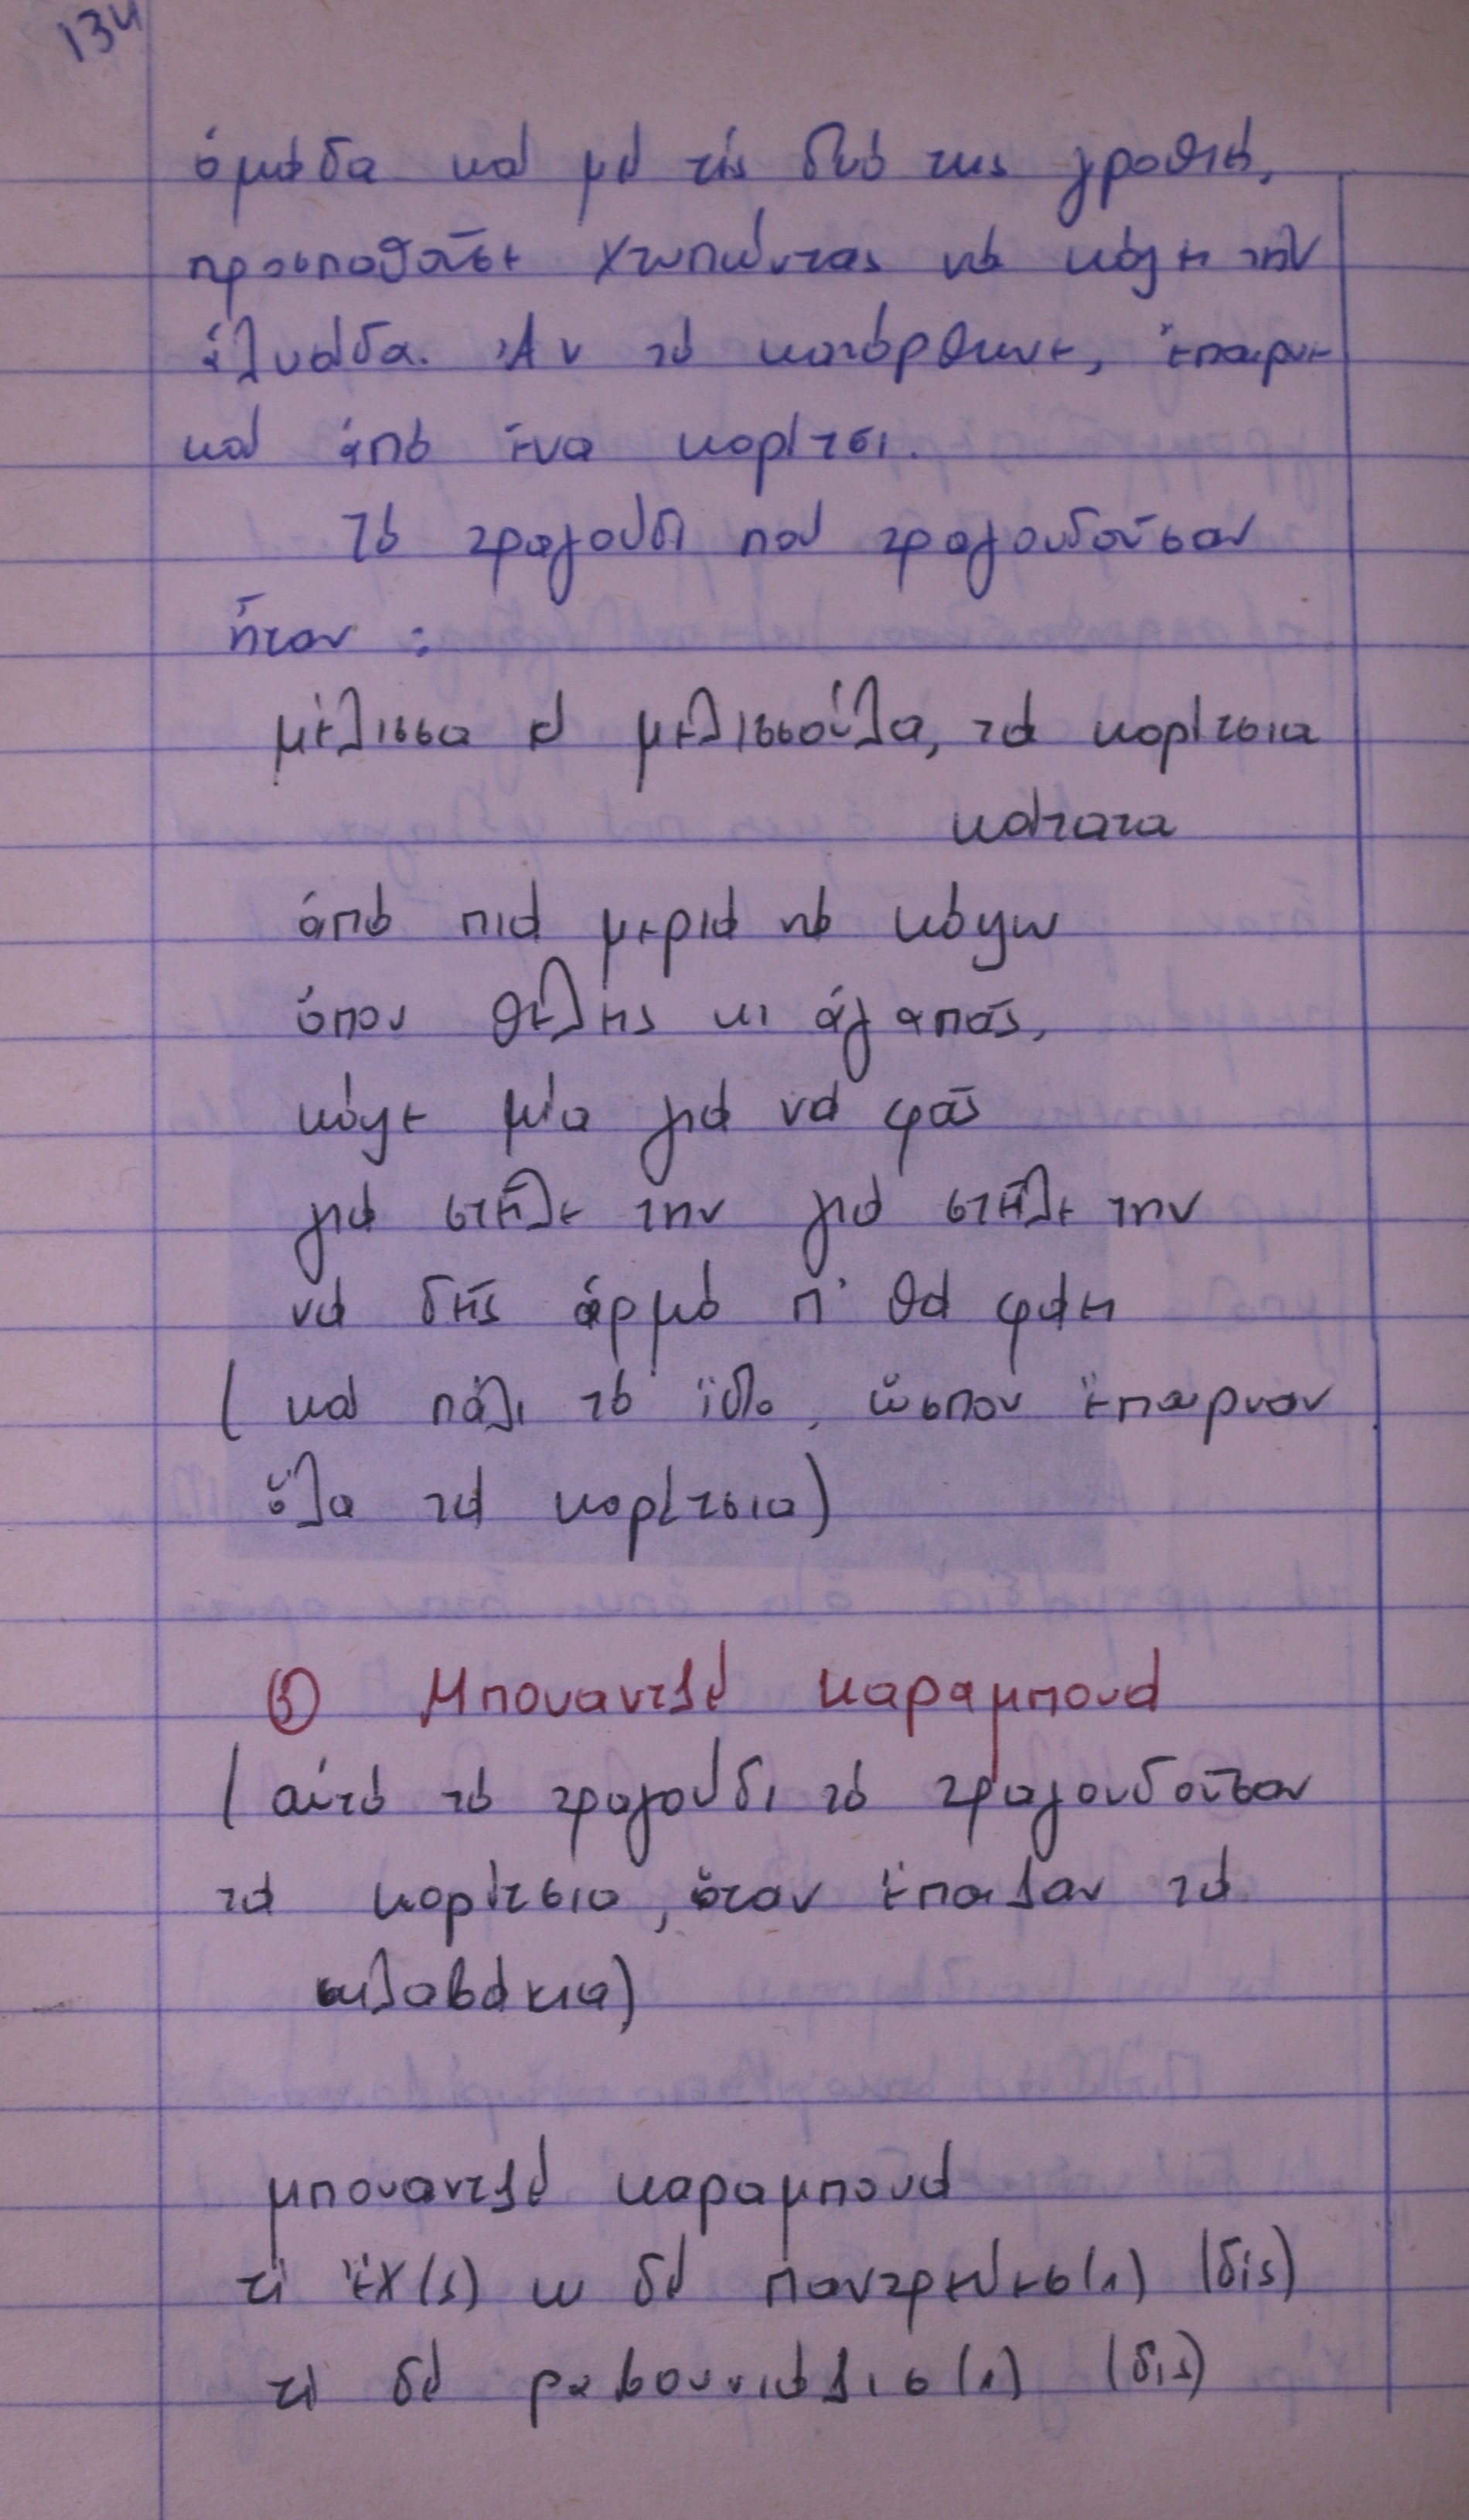 134
ὁμάδα καὶ μὲ τὶς δυό της γροθιές,
προσπαθοῦσε χτυπώντας νὰ κόψει τὴν
ἁλυσίδα. Ἂν τὸ κατόρθωνε, ἔπαιρνε
καὶ ἀπὸ ἕνα κορίτσι.
Τὸ τραγούδι ποὺ τραγουδοῦσαν
ἦταν :
μέλισσα ἒ μελισσούλα, τὰ κορίτσια
κάτατα
ἀπὸ πιὰ μεριὰ νὰ κόψω
ὅπου θέλεις κι ἀγαπᾶς,
κόψε μία γιὰ νὰ φᾶς
γιὰ στεῖλε την γιὰ στεῖλε την
νὰ δεῖς ἁρμὸ π' θὰ φάει
( καὶ πάλι τὸ ἴδιο, ὥσπου ἔπαιρναν
ὅλα τὰ κορίτσια)
Μπουαντζὲ καραμπουὰ
(αὐτὸ τὸ τραγούδι τὸ τραγουδοῦσαν
τὰ κορίτσια, ὅταν ἔπαιζαν τὰ
σκλαβάκια)
μπουαντζὲ καραμπουὰ
τί ἔχ(ς) κι δὲ παντρεύεσ(ι) (δίς)
τί δὲ (δίς)